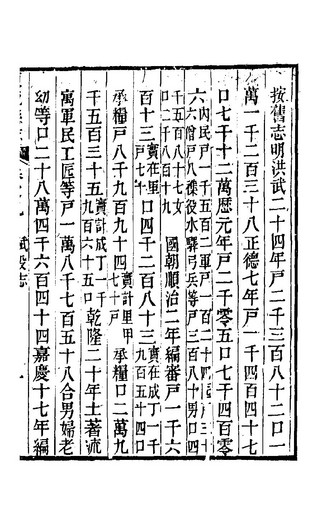 按舊志明洪武二十四年戶二千三百八十二口一
萬一千二百三十八正德七年戶一千四百四十七
口七千十二萬歷元年戶二千零五口七千四百零
六內民戶一千五百二軍戶一百二十四
六僧戶八雜役水驛弓兵等戶三百八十男口四
千五百八十七女
口二千八百十九
國朝順治二年編審戶一千六
百十三實在里
戶七百
口一千四百二十八十三實在成丁一千
九百五十四口
承糧戶八千九百九十四實計里甲
七十戶
承糧口二萬九
千五百三十五實計成丁一千
九百六十五口
乾隆二十年土著流
寓軍民工匠等戶一萬八千七百五十八合男婦老
幼等口二十八萬四千六百四十四嘉慶十七年編
賦役志